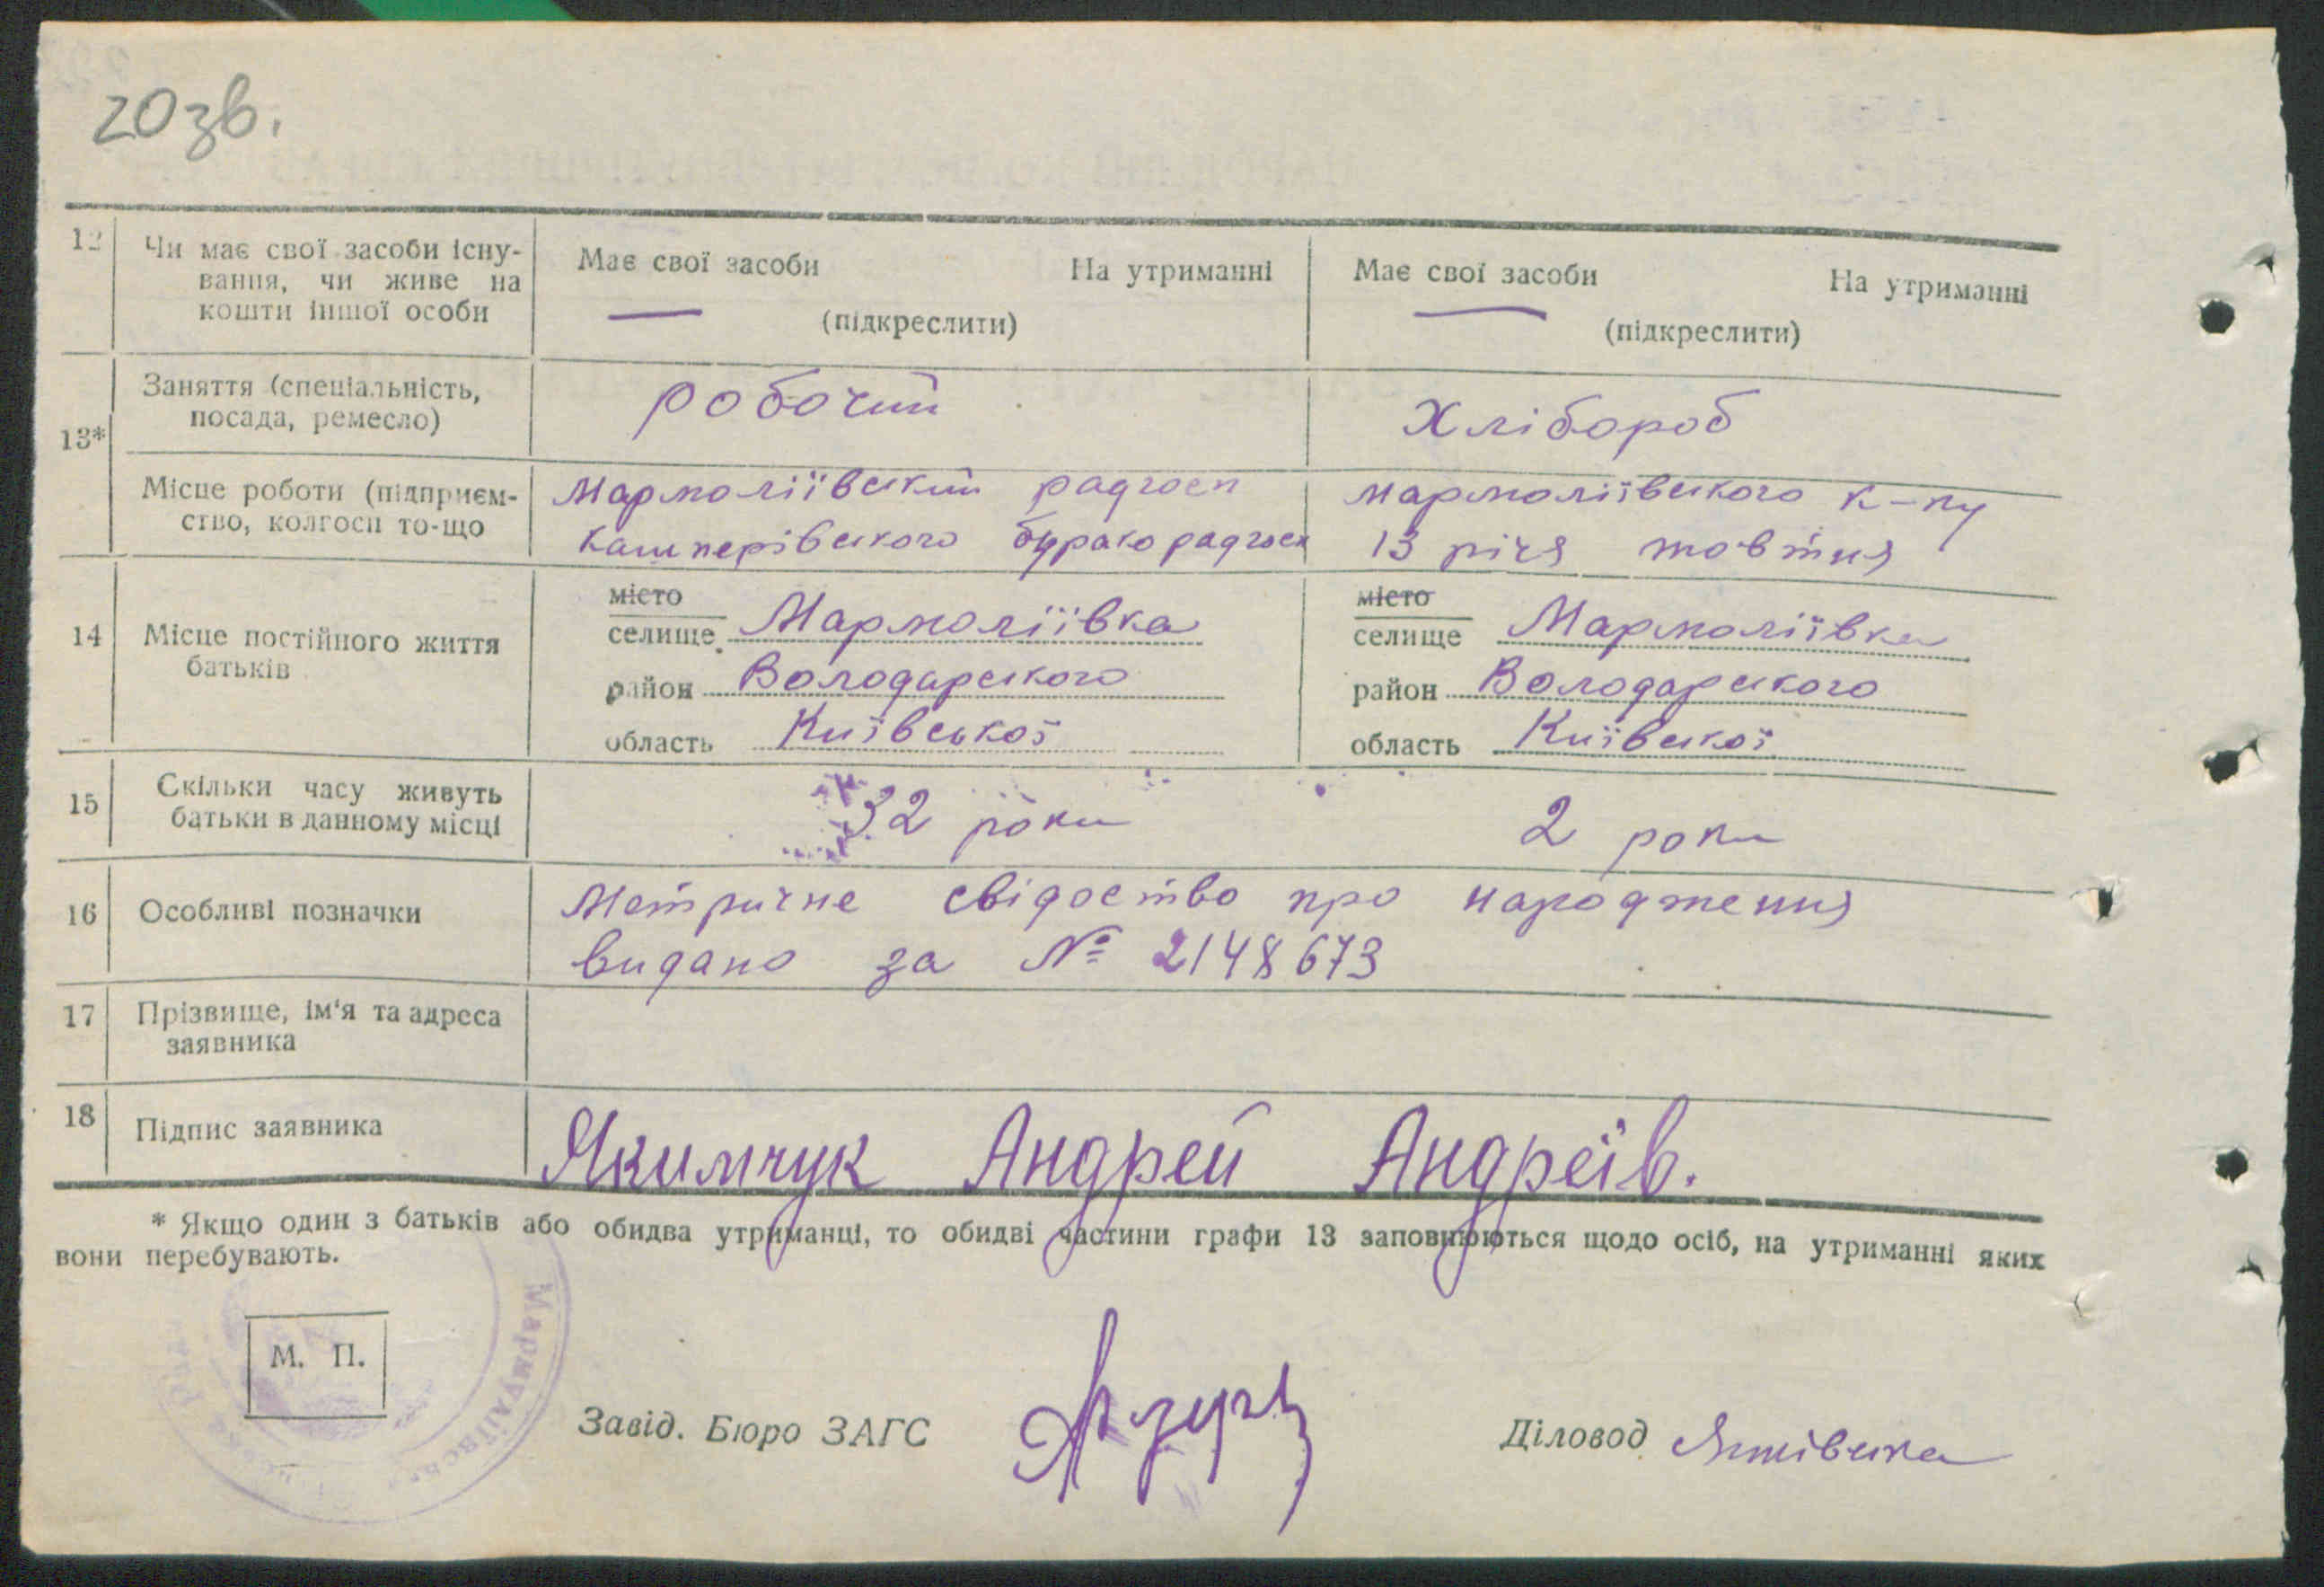 20зв.
12 Чи має свої засоби існу-
вання, чи живе на
кошти іншої особи
Має свої засоби На утриманні
(підкреслити)
Має свої засоби На утриманні
(підкреслити)
13*
Заняття (спеціальність,
посада, ремесло)
робочий
Хлібороб
Місце роботи (підприєм-
ство, колгосп то-що
Мармоліївський радгосп
Кашперівського буракорадгосп
Мармоліївського к-пу
13 річя жовтня
14 Місце постійного життя
батьків
місто
селище Мармоліївка
район Володарського
область Київської
місто
селище Мармоліївка
район Володарського
область Київської
15 Скільки часу живуть
батьки в данному місці
32 роки
2 роки
16 Особливі позначки
Метричне свідоство про народження
видано за № 2148673
17 Прізвище, ім'я та адреса
заявника
18 Підпис заявника
Якимчук Андрей Андреїв.
* Якщо один з батьків або обидва утриманці, то обидві частини графи 13 заповнюються щодо осіб, на утриманні яких
вони перебувають.
М. П.
Завід. Бюро ЗАГС
Діловод